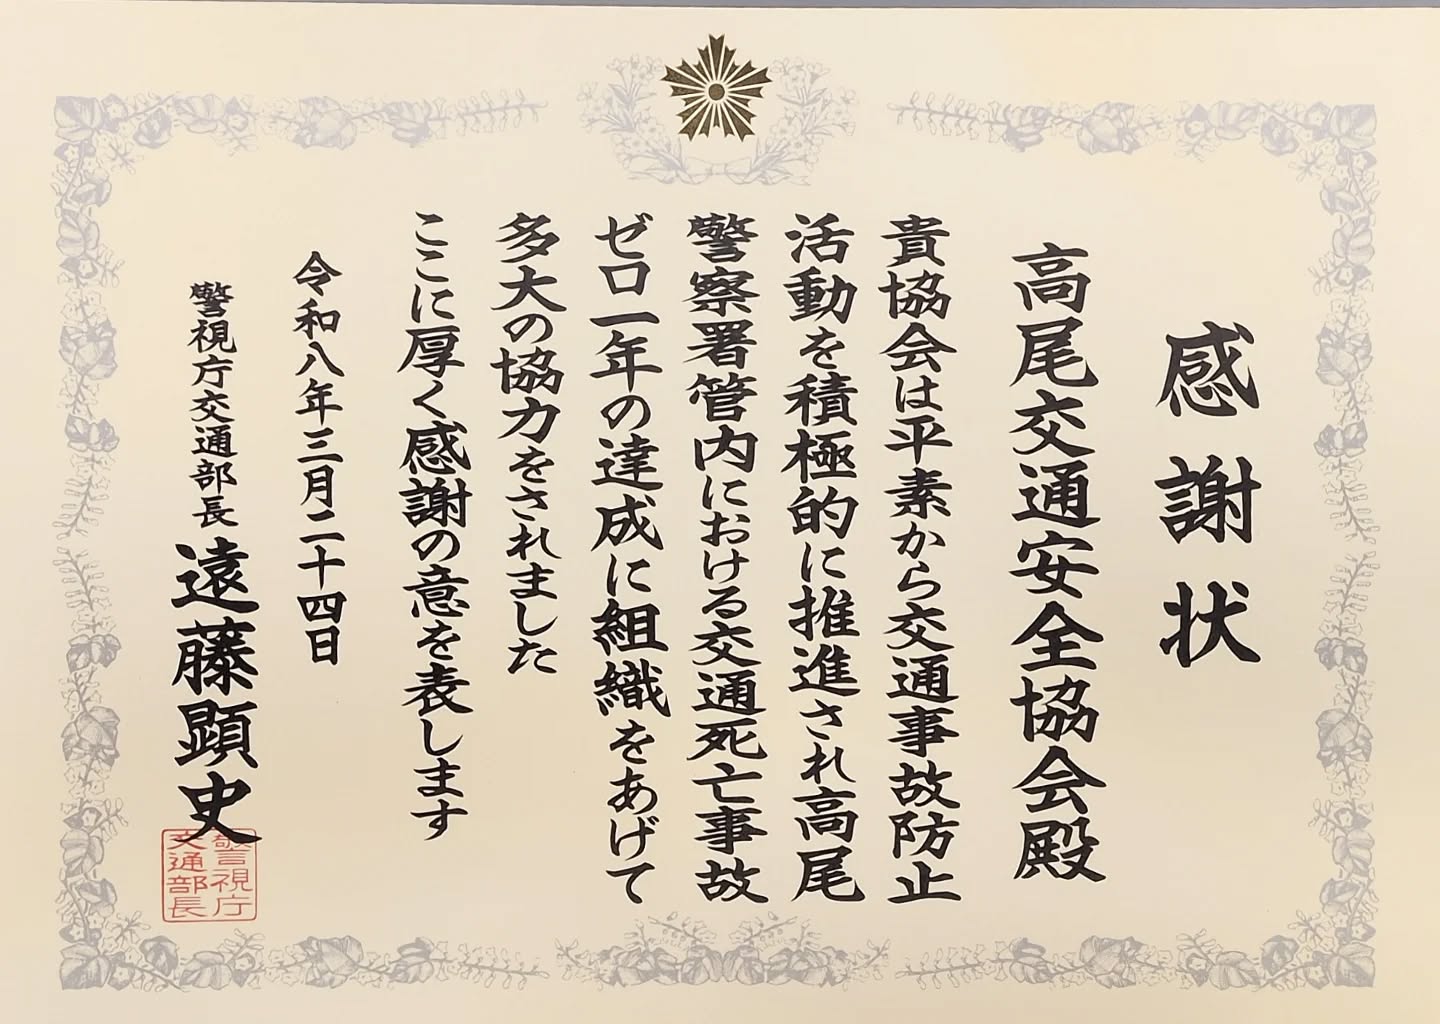 感謝状
高尾交通安全協会殿
貴協会は平素から交通事故防止
活動を積極的に推進され高尾
警察署管内における交通死亡事故
ゼロ一年の達成に組織をあげて
多大の協力をされました
ここに厚く感謝の意を表します
令和八年三月二十四日
警視庁交通部長 遠藤顕史
警視庁
交通部長